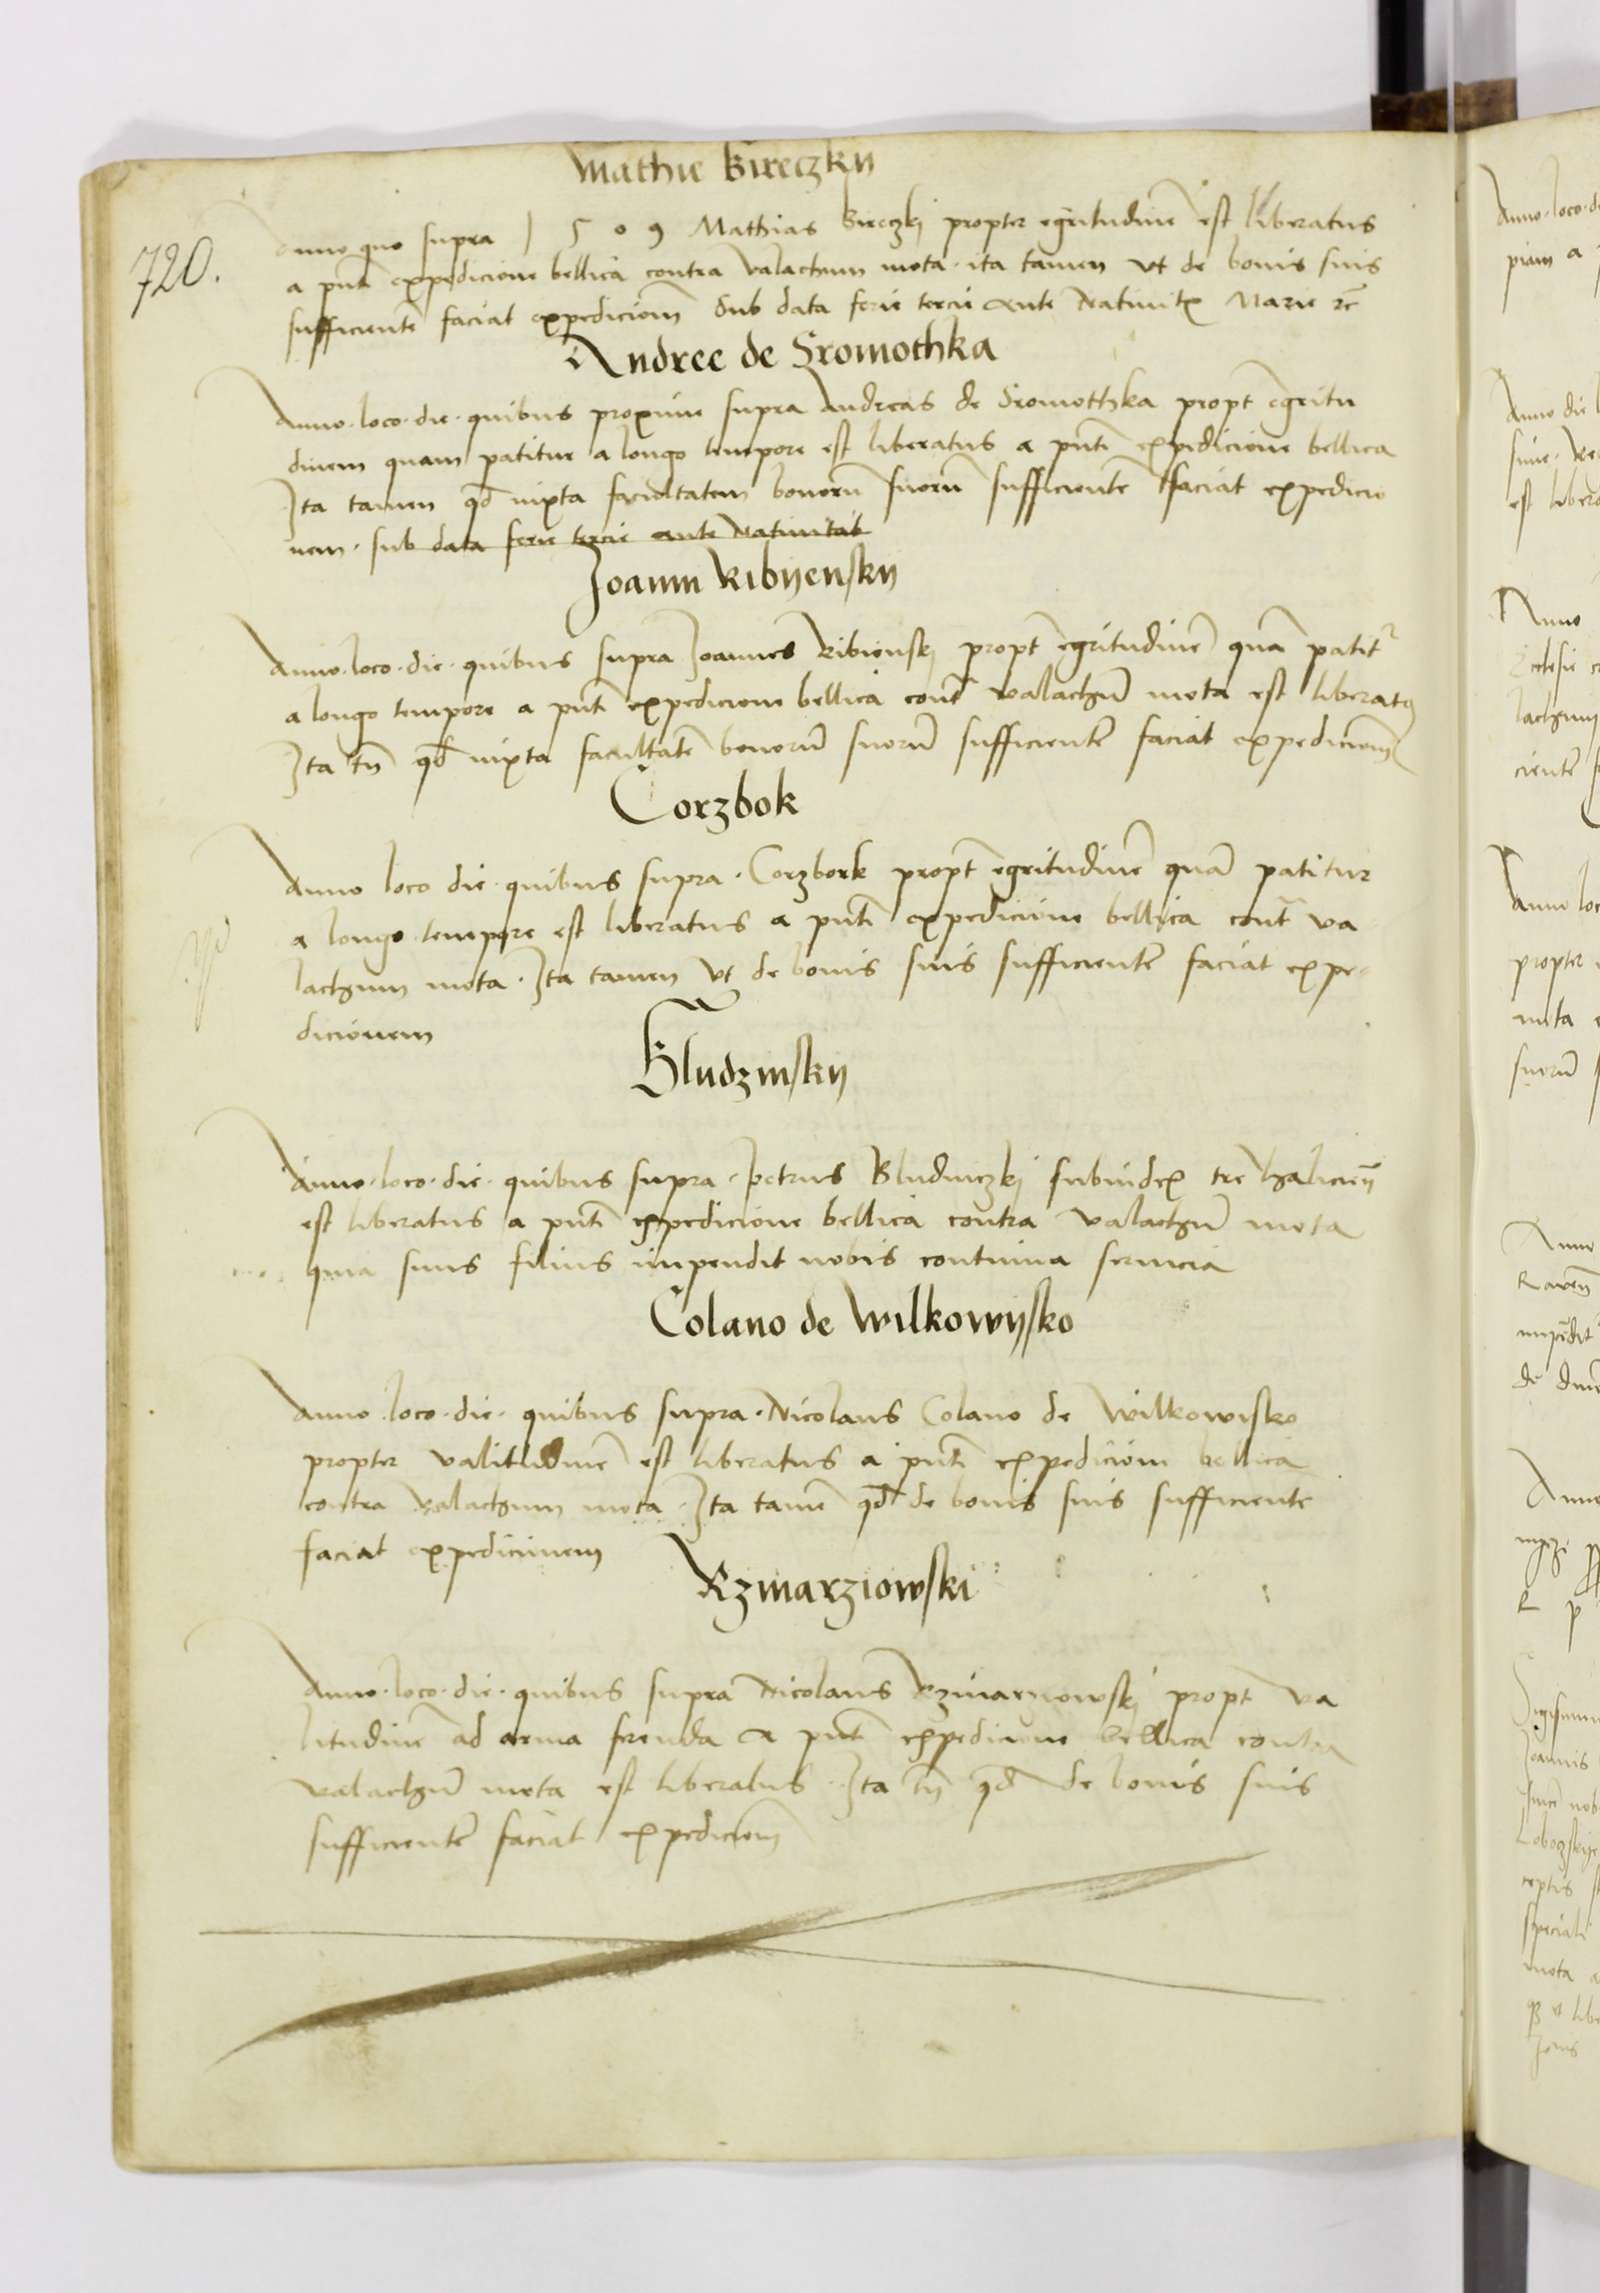 Mathie Bireczky
720.
Anno quo supra 1509 Mathias Bireczki propter egritudinē est liberatus
a pñti expedicione bellica contra valachum mota. ita tamen vt de bonis suis
sufficientē faciat expedicionē Sub data ferie tercie ante Nativitatē Marie rē
Andree de Sromothka
Anno. loco. die. quibus proxime supra Andreas de Sromothka propt̄ egritu
dinem quam patitur a longo tempore est liberatus a pñti expedicione bellica
Ita tamen qd̄ iuxta facultatem bonorū suorū sufficientē faciat expedicio
nem. sub data ferie tercie ante Nativitat
Joanni Ribyensky
Anno. loco. die. quibus supra Joannes Ribienski propt̄ egritudinē quā patit᷑
a longo tempore a pñti expedicione bellica cont̄ valachū mota est liberatꝯ
Ita tñ qd̄ iuxta facultatē bonorū suorū sufficientē faciat expedicionē
Corzbok
Anno loco die quibus supra. Corzbork propt̄ egritudinē quā patitur
a longo tempore est liberatus a pñti expedicione bellica cont̄ va
lachum mota. Ita tamen vt de bonis suis sufficientē faciat expe-
dicionem
Bludzinsky
Anno. loco. die. quibus supra. petrus Bludniczki subiudex tre halicieñ
est liberatus a pñti expedicione bellica contra valachū mota
quia suus filius impendit nobis continua seruicia
Colano de Wilkowysko
Anno. loco. die. quibus supra. Nicolaus Colano de Wilkowisko
propter valitudinē est liberatus a pñti expedicione bellica
contra valachum mota. Ita tamē qd̄ de bonis suis sufficiente
faciat expedicionem
Rzmarziowski
Anno. loco. die. quibus supra Nicolaus Rzmarzowski propt̄ va
litudinē ad arma ferenda a pñti expedicione bellica contra
valachū mota est liberatus. Ita tñ qd̄ de bonis suis
sufficientē faciat expedicionē